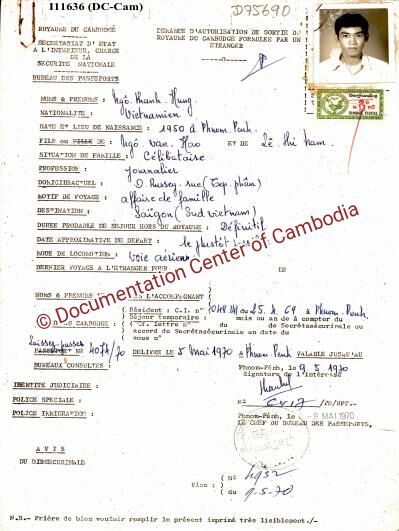 I11636 (DC-Cam)
D75690
ROYAUME DU CAMBODGE
SECRETARIAT D'ETAT
A L'INTERIEUR, CHARGE
DE LA
SECURITE NATIONALE
BUREAU DES PASSEPORTS
DEMANDE D'AUTORISATION DE SORTIE DU
ROYAUME DU CAMBODGE FORMULEE PAR UN
ETRANGER
NOMS & PRENOMS : Ngô Thanh Hung
NATIONALITE : Vietnamien
DATE ET LIEU DE NAISSANCE : 1950 à Phnom-Penh
FILS ou FILLE DE : Ngô van Hao ET DE Lê thi Nam
SITUATION DE FAMILLE : Célibataire
PROFESSION : Journalier
DOMICILE ACTUEL : O. Russey, rue
MOTIF DE VOYAGE : affaire de famille
DESTINATION : Saïgon (Sud vietnam)
DUREE PROBABLE DE SEJOUR HORS DU ROYAUME : Définitif
DATE APPROXIMATIVE DE DEPART : le plustôt
MODE DE LOCOMOTION : Voie aérienne
DERNIER VOYAGE A L'ETRANGER POUR LE
NOMS & PRENOMS L'ACCOMPAGNANT
© Documentation Center of Cambodia
Résident : C.I. n° du 25.4.69 à Phnom-Penh
Séjour temporaire : mois ou an de à compter du
CAMBODGE : lettre n° du de Secrétasécurinale ou
accord de Secrétasécurinale en date du
sous n°
Laissez-passer
PASSEPORT N° 4074/70 DELIVRE LE 5 Mai 1970 à Phnom-Penh VALABLE JUSQU'AU
BUREAUX CONSULTES : Phnom-Pénh, le 9.5.1970
Signature de l'intéressé
IDENTITE JUDICIAIRE :
POLICE SPECIALE :
POLICE IMMIGRATION :
N° /70/BPP.
Phnom-Pénh, le -9 MAI 1970
LE CHEF DU BUREAU DES PASSEPORTS,
AVIS
DU DIRSECURINALE
Visa : (N° 4952
(du 9-5-70
N.B.- Prière de bien vouloir remplir le présent imprimé très lisiblement./-